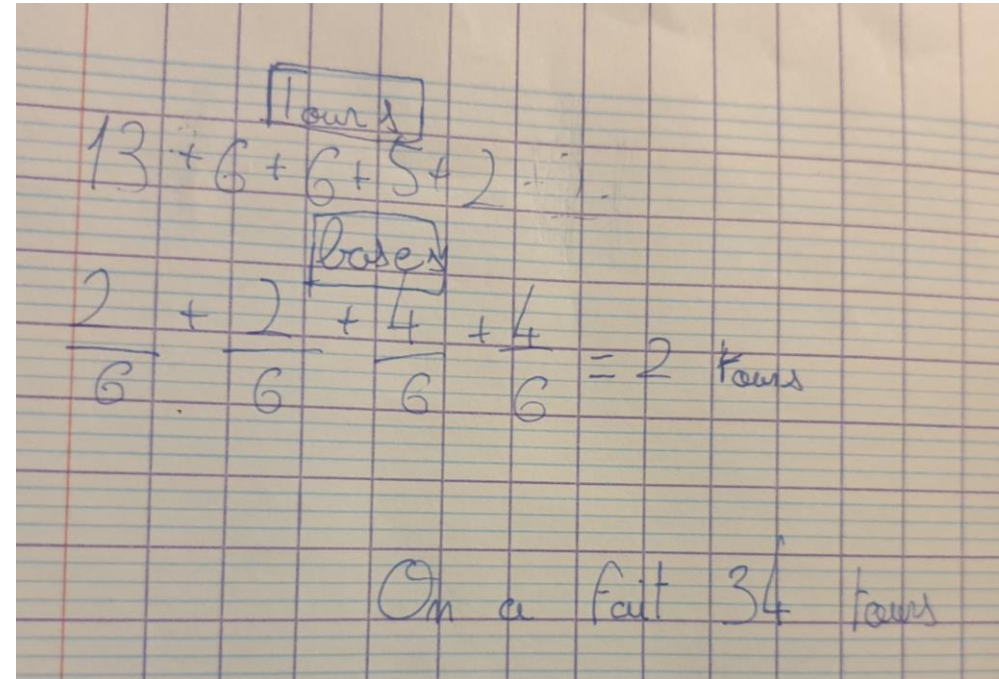 Tours
13 + 6 + 6 + 5 + 2
bases
2/6 + 2/6 + 4/6 + 4/6 = 2 tours
On a fait 34 tours